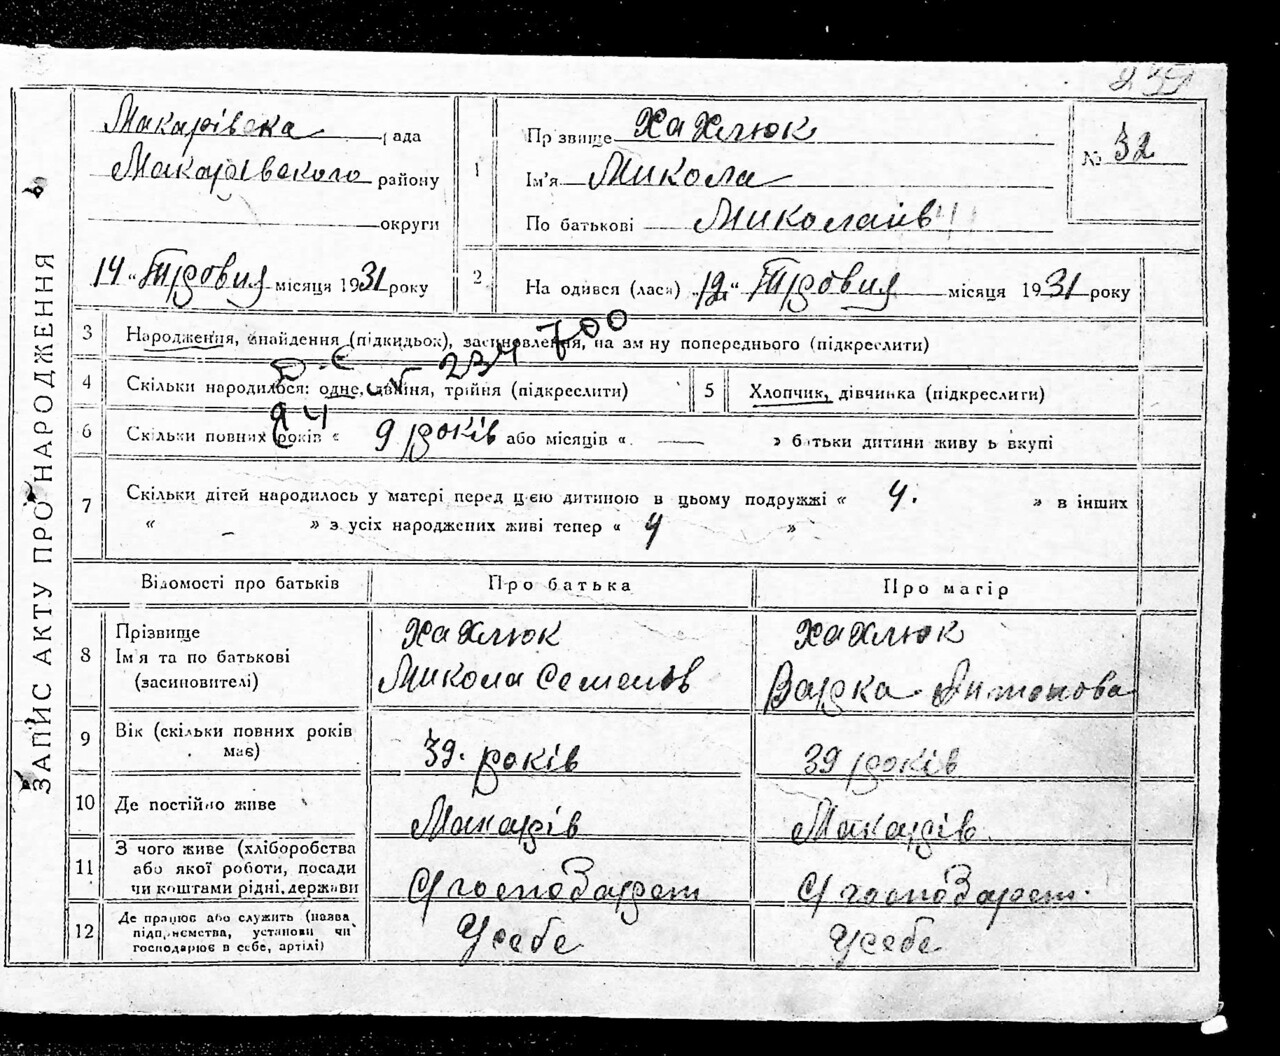 239
ЗАПИС АКТУ ПРО НАРОДЖЕННЯ
Макарівська рада
Макарівського району
округи
14 "Трʼовня місяця 1931 року
1
Прізвище Хахлюк
Ім'я Микола
По батькові Миколаїв
№ 32
2
На одився (лася) „12" Трʼовня місяця 1931 року
3 Народження, знайдення (підкидьок), засиновлення, на зм ну попереднього (підкреслити)
234 700
4 Скільки народилося: одне, двійня, трійня (підкреслити)
5 Хлопчик, дівчинка (підкреслити)
6 Скільки повних років « 9 років або місяців « — » батьки дитини живу ь вкупі
7 Скільки дітей народилось у матері перед цією дитиною в цьому подружжі « 4. » в інших
« – » з усіх народжених живі тепер « 4 »
Відомості про батьків Про батька Про матір
8 Прізвище Ім'я та по батькові (засиновителі)
Хахлюк Микола Семенов
Хахлюк Варка Антонова
9 Вік (скільки повних років має) 39. років 39 років
10 Де постійно живе Макарів Макарів
11 З чого живе (хліборобства або якої роботи, посади чи коштами рідні, держави
С/господарст С/господарст.
12 Де працює або служить (назва підприємства, установи чи господарює в себе, артілі)
У себе У себе